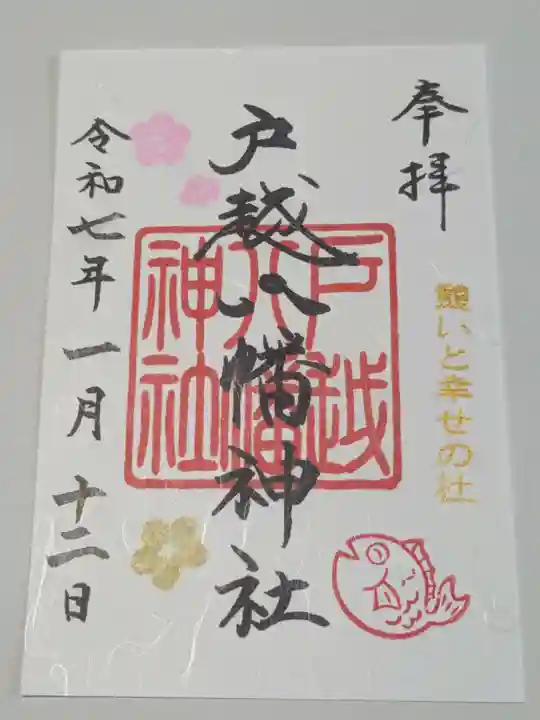 奉拝
憩いと幸せの社
戸越八幡神社
戸越
八幡
神社
令和七年一月十二日